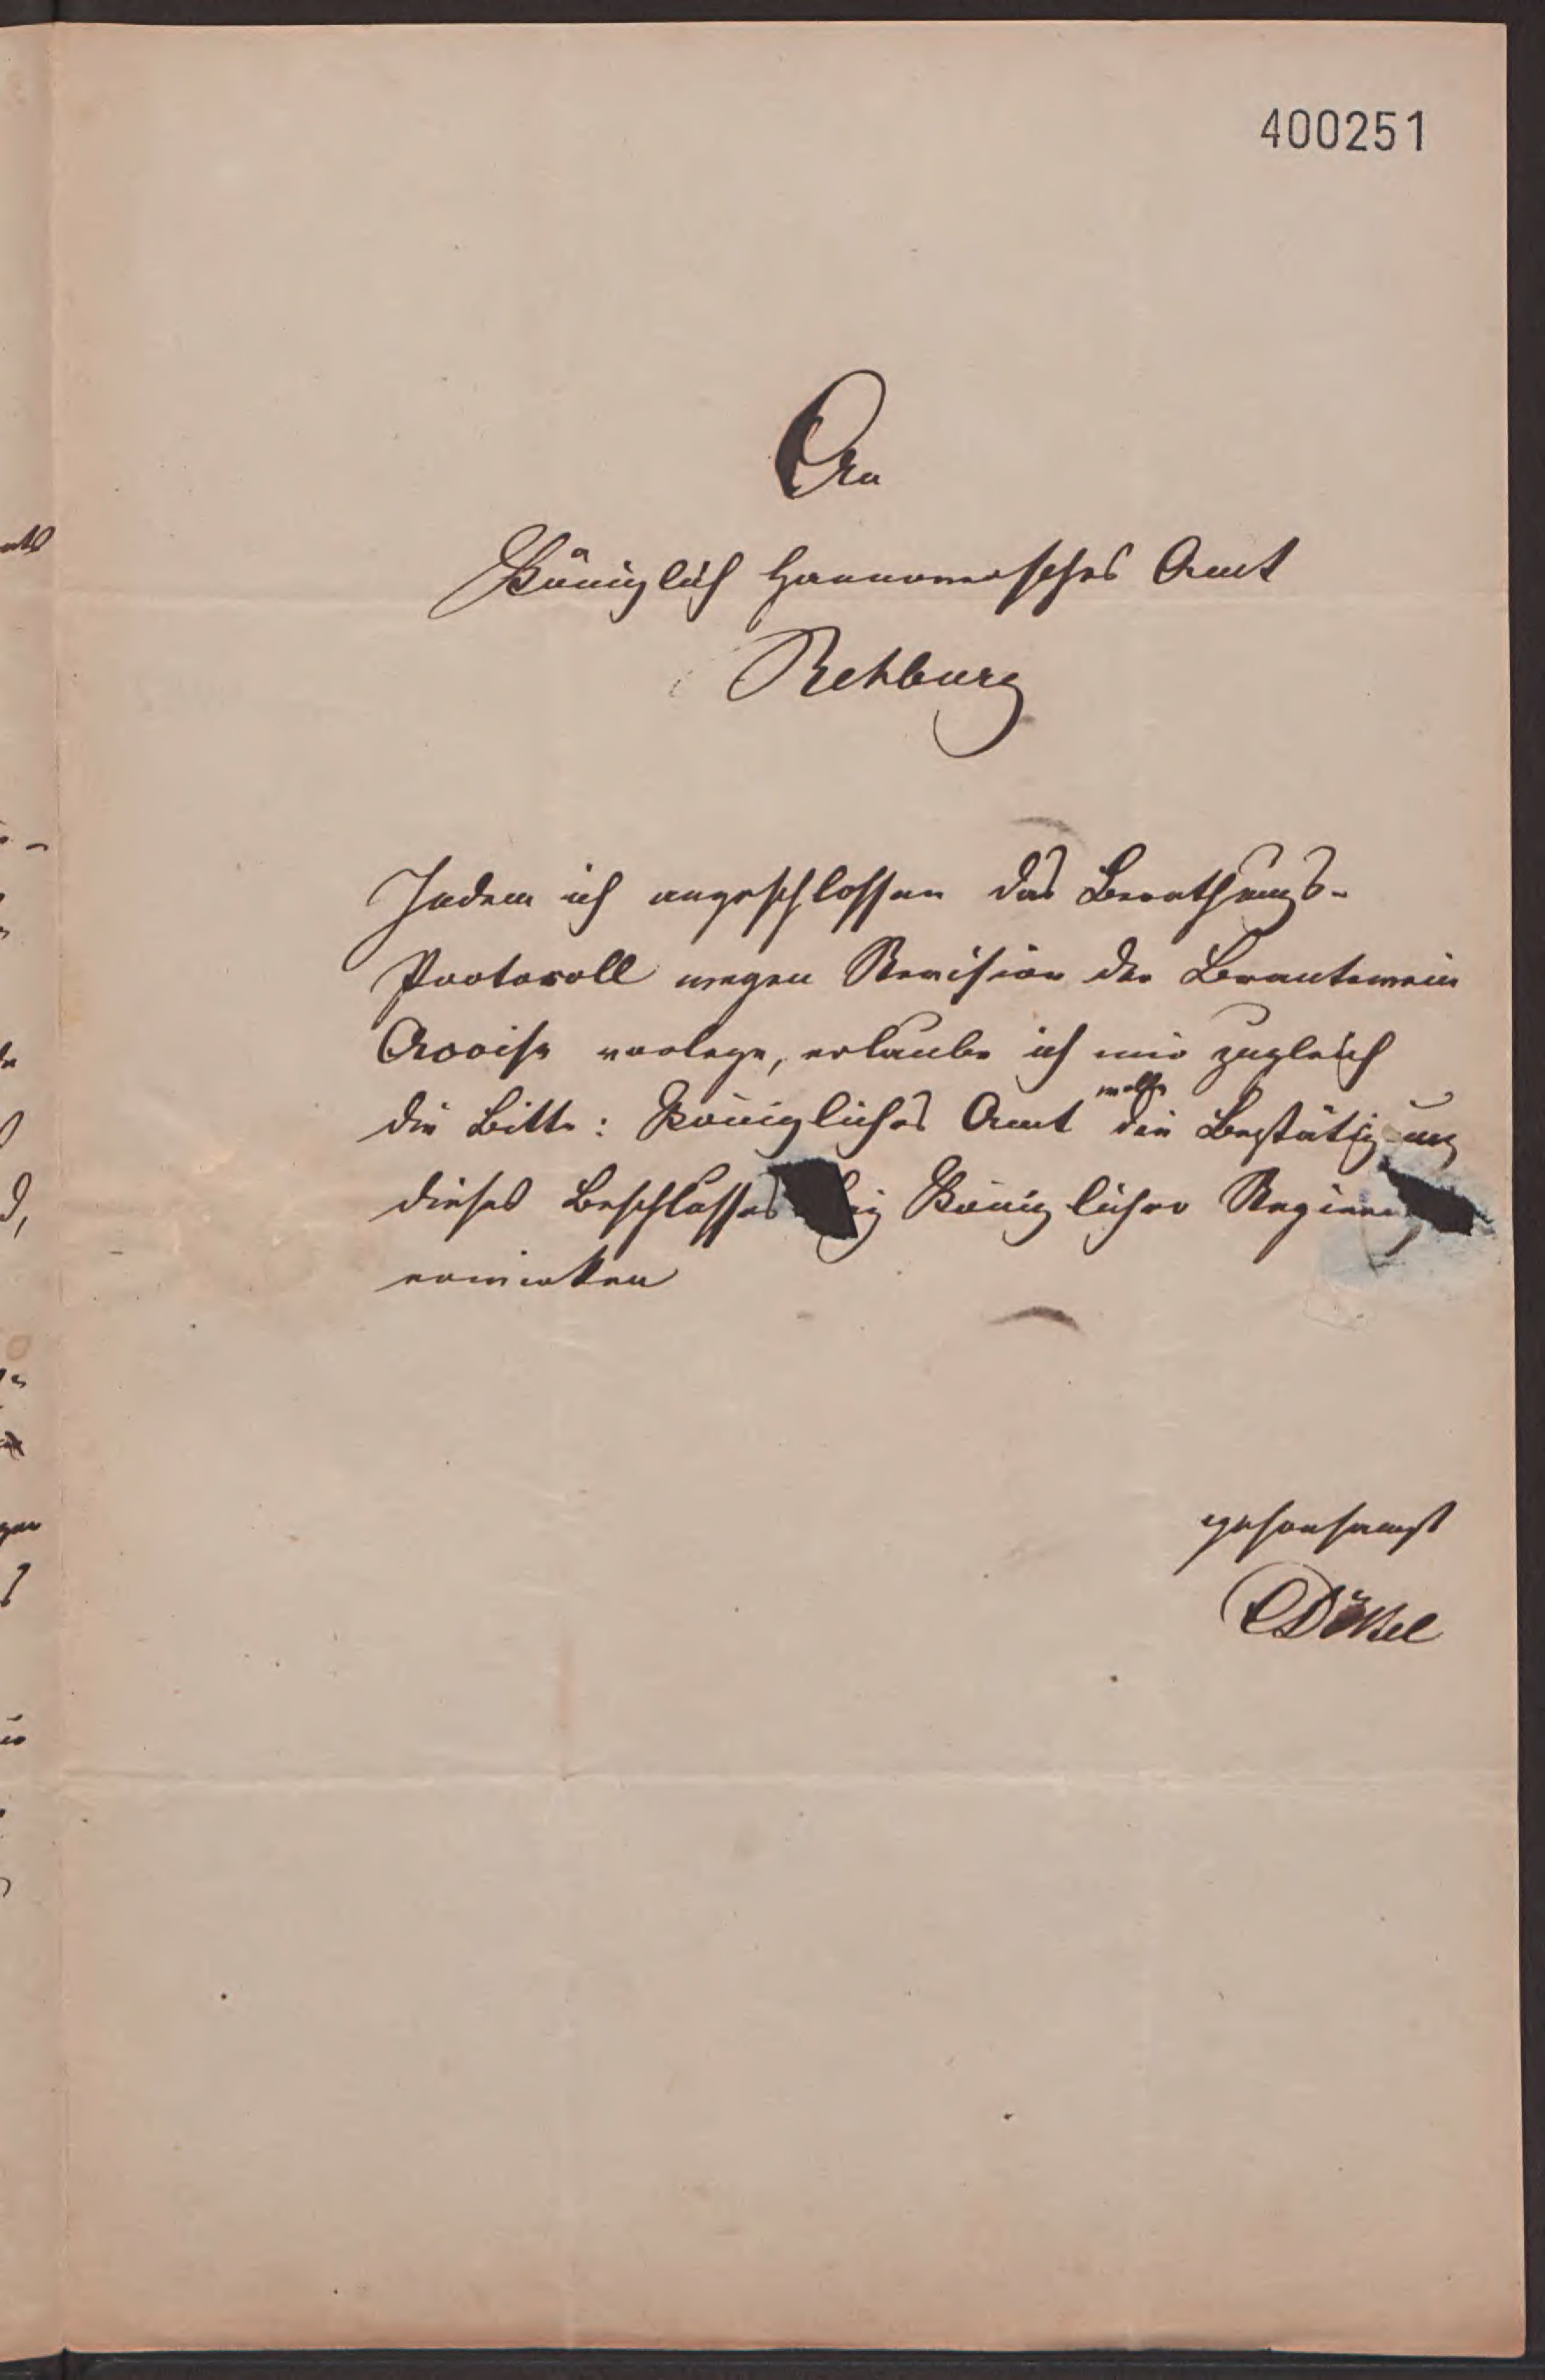 400251
An
Königlich Hannoversches Amt
Rehburg
Indem ich angeschlossen das Berathungs-
Protocoll wegen Revision der Brantewein
Accise vorlege, erlaube ich mir zugleich
die Bitte: Königliches Amt wolle die Bestätigung
dieses Beschlusses bei Königlicher Regierung
erwirken
gehorsamst